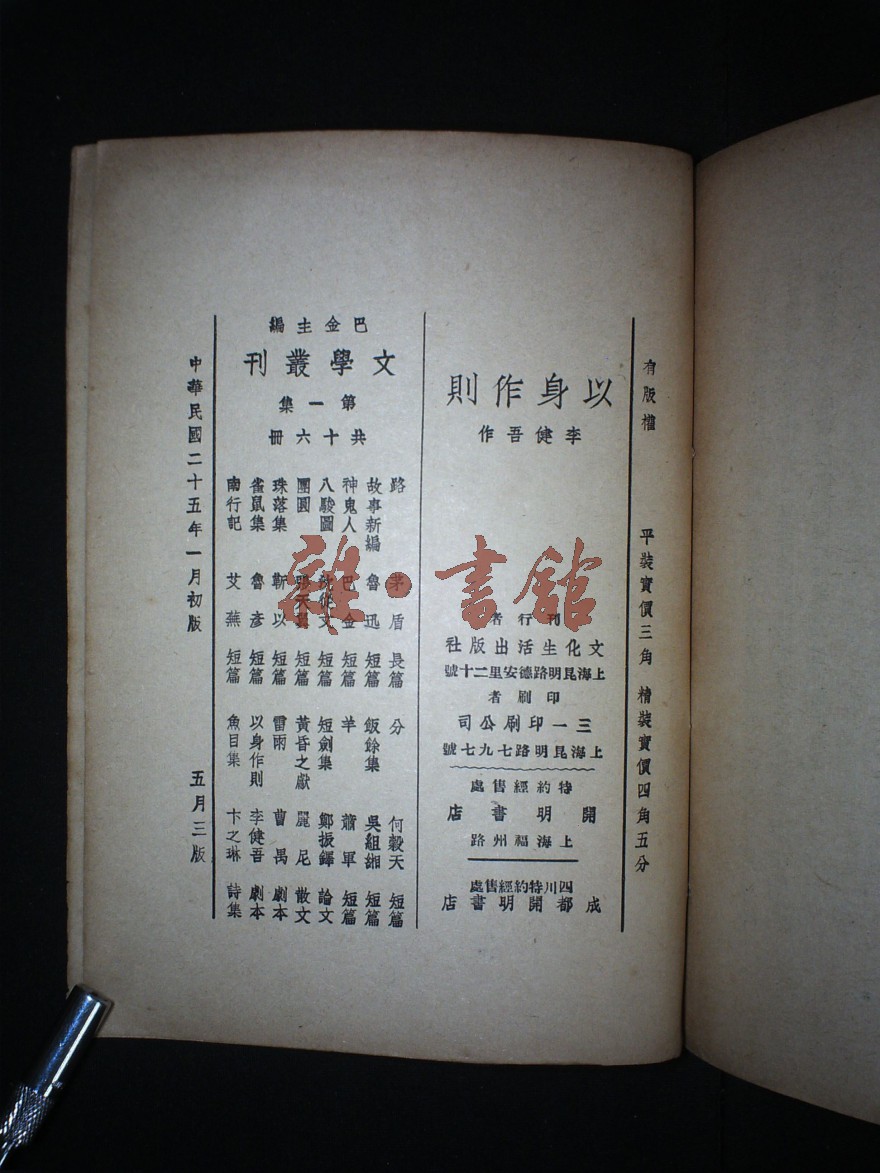 有版權 平裝實價三角 精裝實價四角五分
以身作則
李健吾作
刊行者
文化生活出版社
上海昆明路德安里二十號
印刷者
三一印刷公司
上海昆明路七九七號
特約經售處
開明書店
上海福州路
四川特約經售處
成都開明書店
巴金主編
文學叢刊
第一集
共十六冊
路 茅盾 長篇
故事新編 魯迅 短篇
神鬼人 巴金 短篇
八駿圖 沈從文 短篇
團圓 張天翼 短篇
珠落集 靳以 短篇
雀鼠集 魯彥 短篇
南行記 艾蕪 短篇
分 何穀天 短篇
飯餘集 吳組緗 短篇
羊 蕭軍 短篇
短劍集 鄭振鐸 論文
黃昏之獻 麗尼 散文
雷雨 曹禺 劇本
以身作則 李健吾 劇本
魚目集 卞之琳 詩集
中華民國二十五年一月初版 五月三版
雜·書館